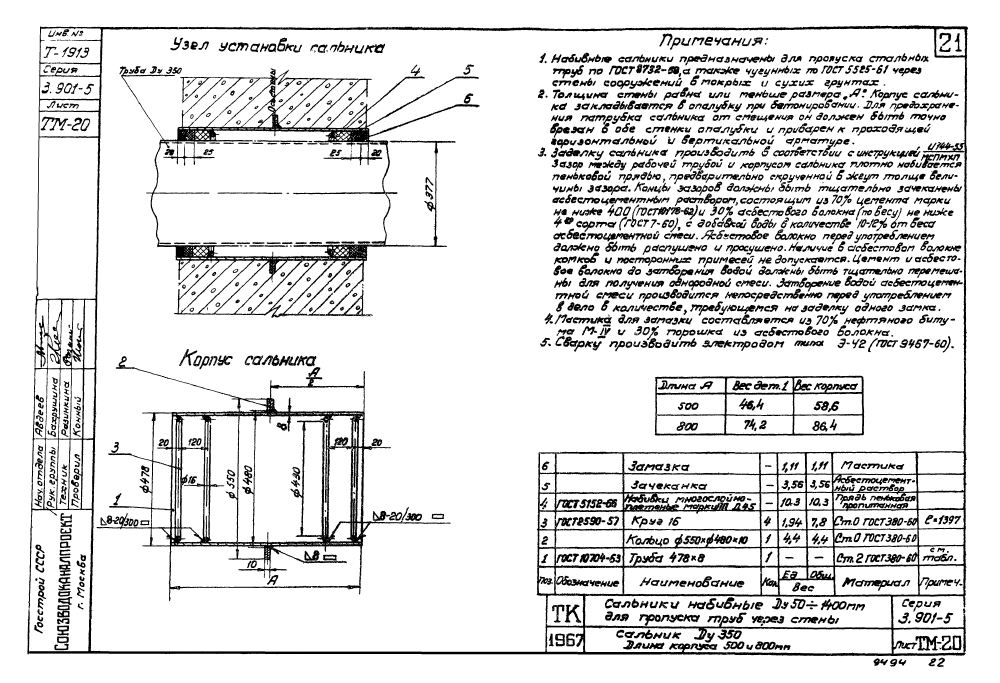 Инв. №
Т-1913
Серия
3.901-5
Лист
ТМ-20
Нач. отдела Авдеев
Рук. группы Бахрушина
Техник Резинкина
Проверил Конный
Госстрой СССР
СОЮЗВОДОКАНАЛПРОЕКТ
г. Москва
Узел установки сальника
Труба Ду 350
4
5
6
20
25
25
20
ф377
Корпус сальника
2
А
2
8
20
120
120
20
3
ф478
ф16
ф550
ф480
ф430
1
8-20/300
8-20/300
8
10
А
21
Примечания:
1. Набивные сальники предназначены для пропуска стальных
труб по ГОСТ 8732-58, а также чугунных по ГОСТ 5525-61 через
стены сооружений в мокрых и сухих грунтах.
2. Толщина стены равна или меньше размера „А". Корпус сальни-
ка закладывается в опалубку при бетонировании. Для предохране-
ния патрубка сальника от смещения он должен быть точно
врезан в обе стенки опалубки и приварен к проходящей
горизонтальной и вертикальной арматуре.
3. Заделку сальника производить в соответствии с инструкцией И744-55
МСПМХП
Зазор между рабочей трубой и корпусом сальника плотно набивается
пеньковой прядью, предварительно скрученной в жгут толще вели-
чины зазора. Концы зазоров должны быть тщательно зачеканены
асбестоцементным раствором, состоящим из 70% цемента марки
не ниже 400 (ГОСТ 10178-62) и 30% асбестового волокна (по весу) не ниже
4го сорта (ГОСТ 7-60), с добавкой воды в количестве 10-12% от веса
асбестоцементной смеси. Асбестовое волокно перед употреблением
должно быть распушено и просушено. Наличие в асбестовом волокне
комков и посторонних примесей не допускается. Цемент и асбесто-
вое волокно до затворения водой должны быть тщательно перемеша-
ны для получения однородной смеси. Затворение водой асбестоцемен-
тной смеси производится непосредственно перед употреблением
в дело в количестве, требующемся на заделку одного замка.
4. Мастика для замазки составляется из 70% нефтяного биту-
ма М-IV и 30% порошка из асбестового волокна.
5. Сварку производить электродом типа Э-42 (ГОСТ 9467-60).
Длина А Вес дет. 1 Вес корпуса
500 46,4 58,6
800 74,2 86,4
6 Замазка – 1,11 1,11 Мастика
5 Зачеканка – 3,56 3,56 Асбестоцемент-
ный раствор
4 ГОСТ 5152-66 Набивки многослойно-
плетеные марки ПП Д.45 – 10.3 10.3 Прядь пеньковая
пропитанная
3 ГОСТ 2590-57 Круг 16 4 1,94 7,8 Ст.0 ГОСТ 380-60 ℓ=1397
2 Кольцо ф550×ф480×10 1 4,4 4,4 Ст.0 ГОСТ 380-60
1 ГОСТ 10704-63 Труба 478×8 1 – – Ст.2 ГОСТ 380-60 см.
табл.
Поз. Обозначение Наименование Кол. Ед. Общ.
Вес Материал Примеч.
ТК
1967
Сальники набивные Ду 50÷1400мм
для пропуска труб через стены
Серия
3.901-5
Сальник Ду 350
Длина корпуса 500 и 800мм
Лист ТМ-20
9494 22